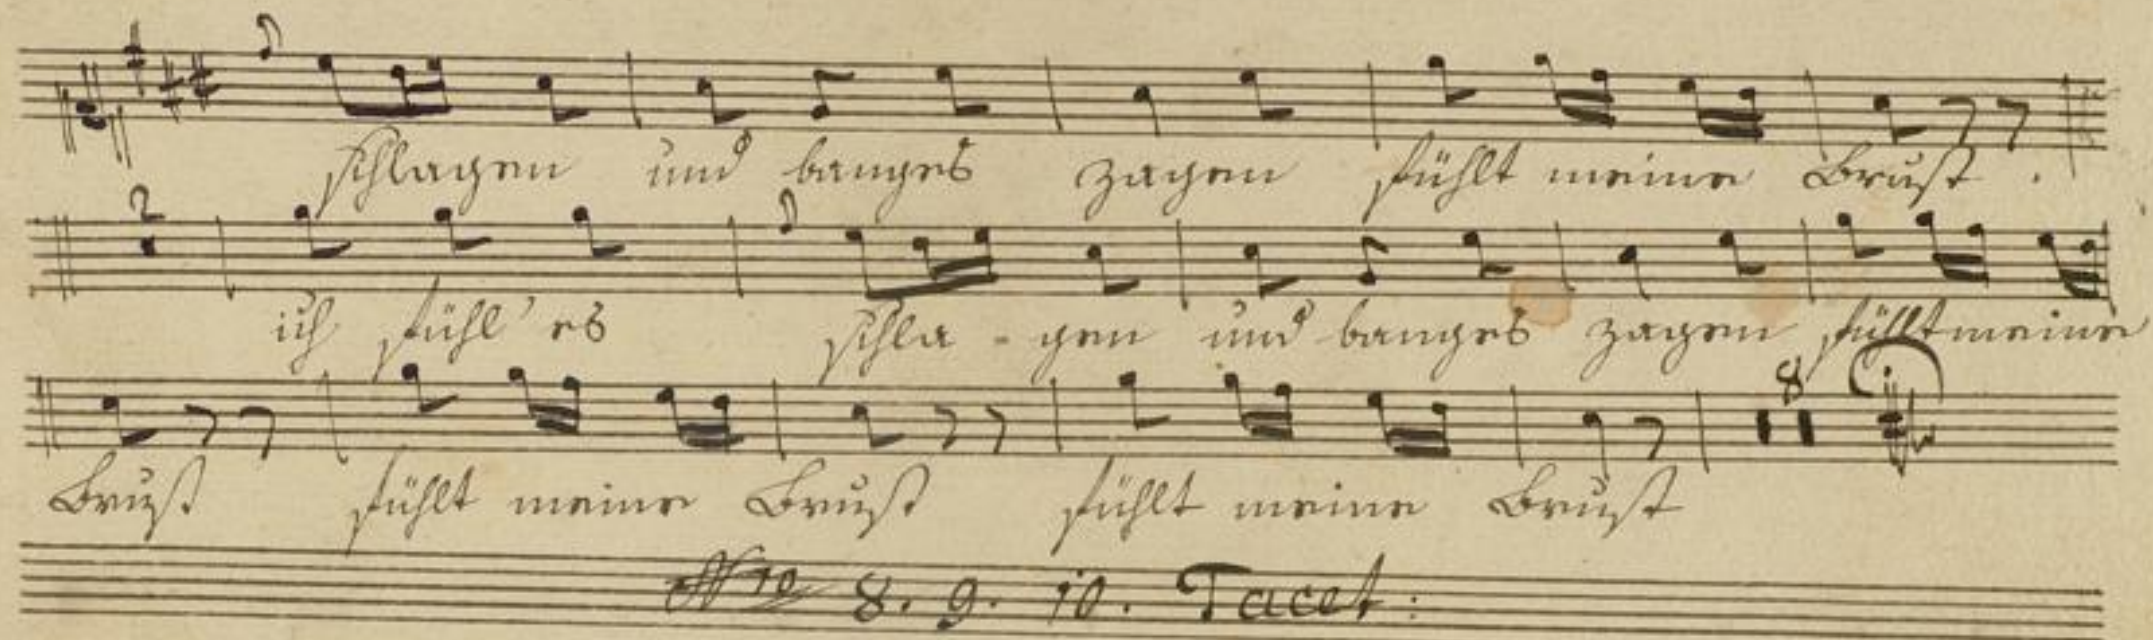 schlagen und banges zagen fühlt meine Brust.
2
ich fühl' es schla - gen und banges zagen fühlt meine
8
Brust fühlt meine Brust fühlt meine Brust
Nro 8. 9. 10. Tacet: